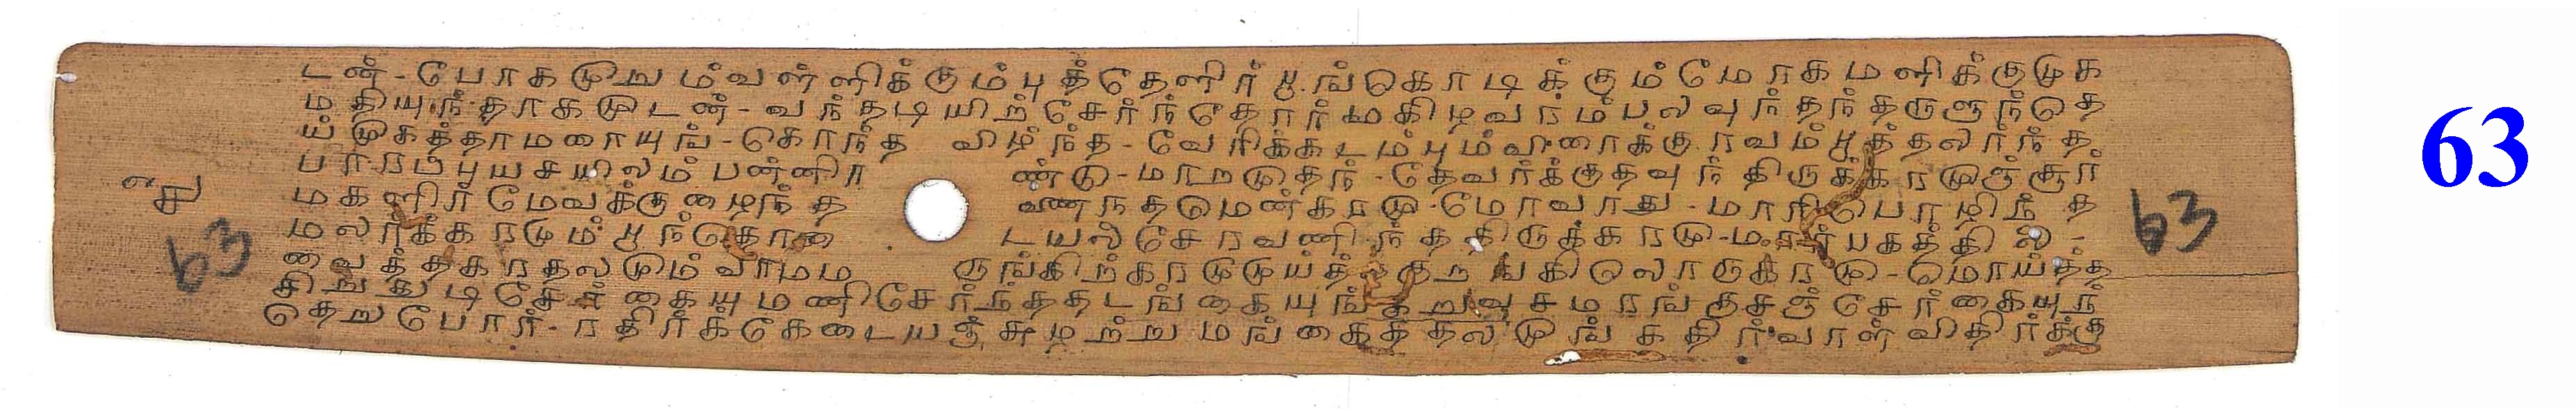 டன்-போகமுறும்வள்ளிக்கும்புத்தேளிர் பூங்கொடிக்கும்மோகமளிக்குமுக
மதியுந்-தாகமுடன்-வந்தடியிற்சேர்ந்தோர்மகிழவரம்பலவுந்தந்தருளுந்தெ
ய்முகத்தாமரையுங்-கொந்த விழ்ந்த-வேரிக்கடம்பும்விரைக்குரவம்பூத்தலர்ந்த
பாரப்புயசயிலம்பன்னிர ண்டு-மாறமுதந்-தேவர்க்குதவுந்திருக்கரமுஞ்சூர்
மகளிர்மேவக்குழைந்த வணைந்தமென்கரமு-மோவாது-மாரிபொழிந்த
மலர்க்கரமும்பூந்தொடை டயல்சேரவணிந்ததிருக்கரமு-மார்பகத்தில்-
வைத்தகரதலமும்வாமம ருங்கிற்கரமுமுய்த்தகுறங்கிலொருகரமு-மொய்த்த
சிறுதுடிசேர்கையுமணிசேர்ந்ததடங்கையுங்கறுவுசமரங்குசஞ்சேர்கையுந்
தெறுபோர்-ரதிர்க்கேடையஞ்சுழற்றுமங்கைத்தலமுங்கதிர்வாள்விதிர்க்கு
63
63
63